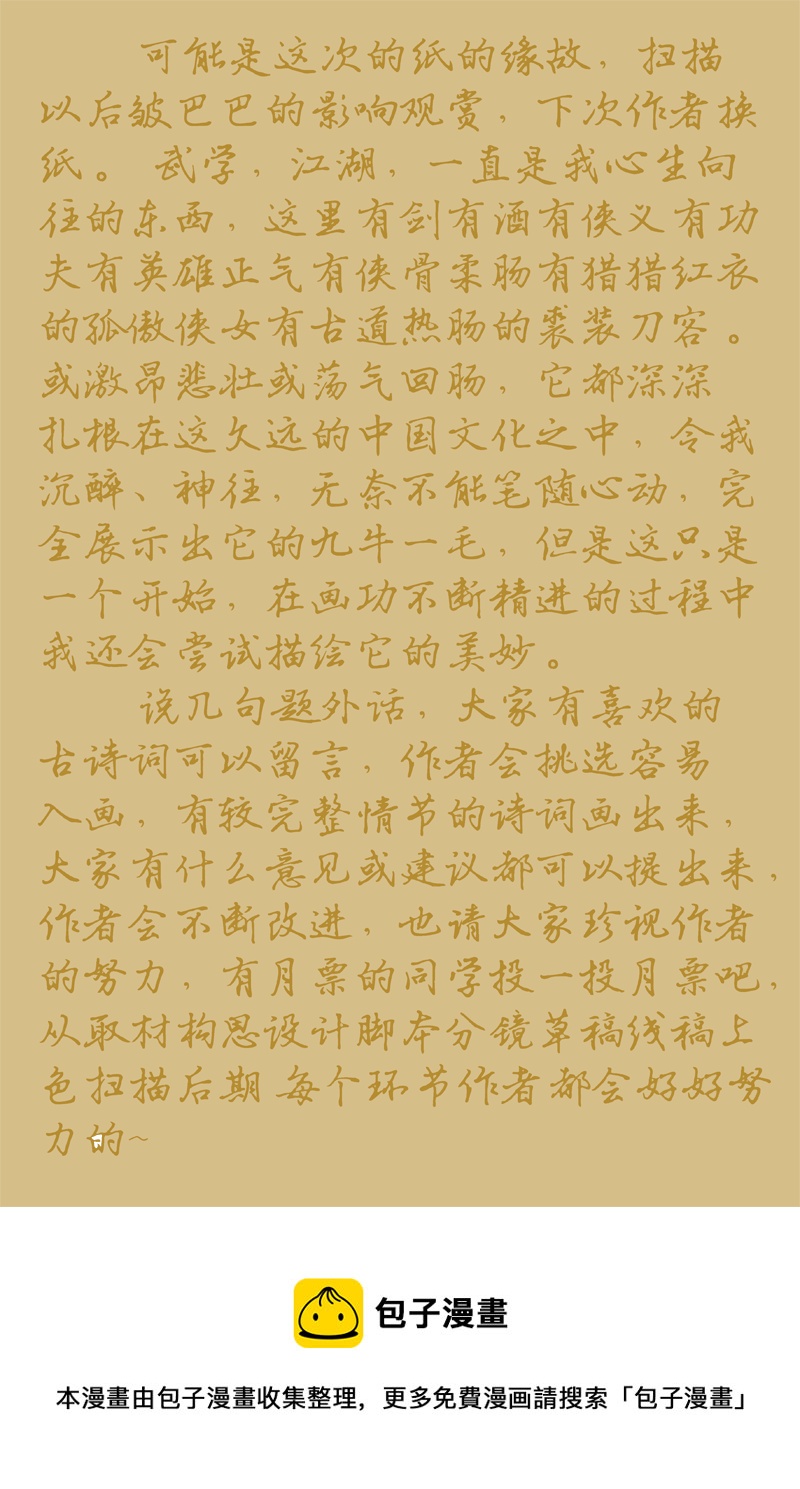 可能是这次的纸的缘故，扫描
以后皱巴巴的影响观赏，下次作者换
纸。 武学，江湖，一直是我心生向
往的东西，这里有剑有酒有侠义有功
夫有英雄正气有侠骨柔肠有猎猎红衣
的孤傲侠女有古道热肠的裘装刀客。
或激昂悲壮或荡气回肠，它都深深
扎根在这久远的中国文化之中，令我
沉醉、神往，无奈不能笔随心动，完
全展示出它的九牛一毛，但是这只是
一个开始，在画功不断精进的过程中
我还会尝试描绘它的美妙。
说几句题外话，大家有喜欢的
古诗词可以留言，作者会挑选容易
入画，有较完整情节的诗词画出来，
大家有什么意见或建议都可以提出来，
作者会不断改进，也请大家珍视作者
的努力，有月票的同学投一投月票吧，
从取材构思设计脚本分镜草稿线稿上
色扫描后期 每个环节作者都会好好努
力的~
包子漫畫
本漫畫由包子漫畫收集整理，更多免費漫画請搜索「包子漫畫」